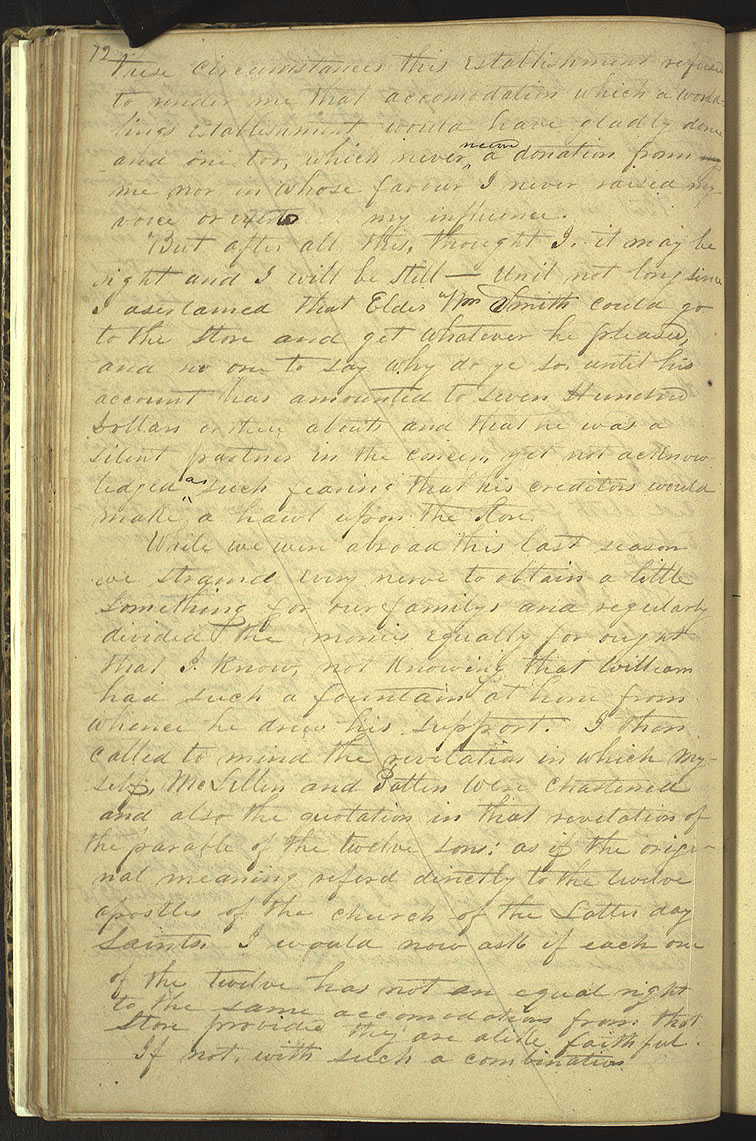 72
these circumstances this establishment refused
to render me that accomodation which a world-
lings establishment would have gladly done
and one too, which never a donation from
me nor in whose favour I never raised my
voice or exerted my influence.
But after all this, thought I, it may be
right and I will be still — Until not long since
I asertained that Elder Wm Smith could go
to the store and get whatever he pleased,
and no one to say why do ye so, until his
account has amounted to seven Hundred
Dollars or there abouts and that he was a
silent partner in the concern, yet not acknow-
ledged as such fearing that his creditors would
make a hawl upon the Store.
While we were abroad this last season
we strained every nerve to obtain a little
something for our familys and regularly
divided the monies equally for ought
that I know, not knowing that William
had such a fountain at home from
whence he drew his support. I then
called to mind the revelation in which my-
self, McLellin and Patten were chastened
and also the quotation in that revelation of
the parable of the twelve sons: as if the origi-
nal meaning referd directly to the twelve
apostles of the church of the Latter day
Saints. I would now ask if each one
of the twelve has not an equal right
to the same accomodations from that
Store provided they are alike faithful.
If not, with such a combination